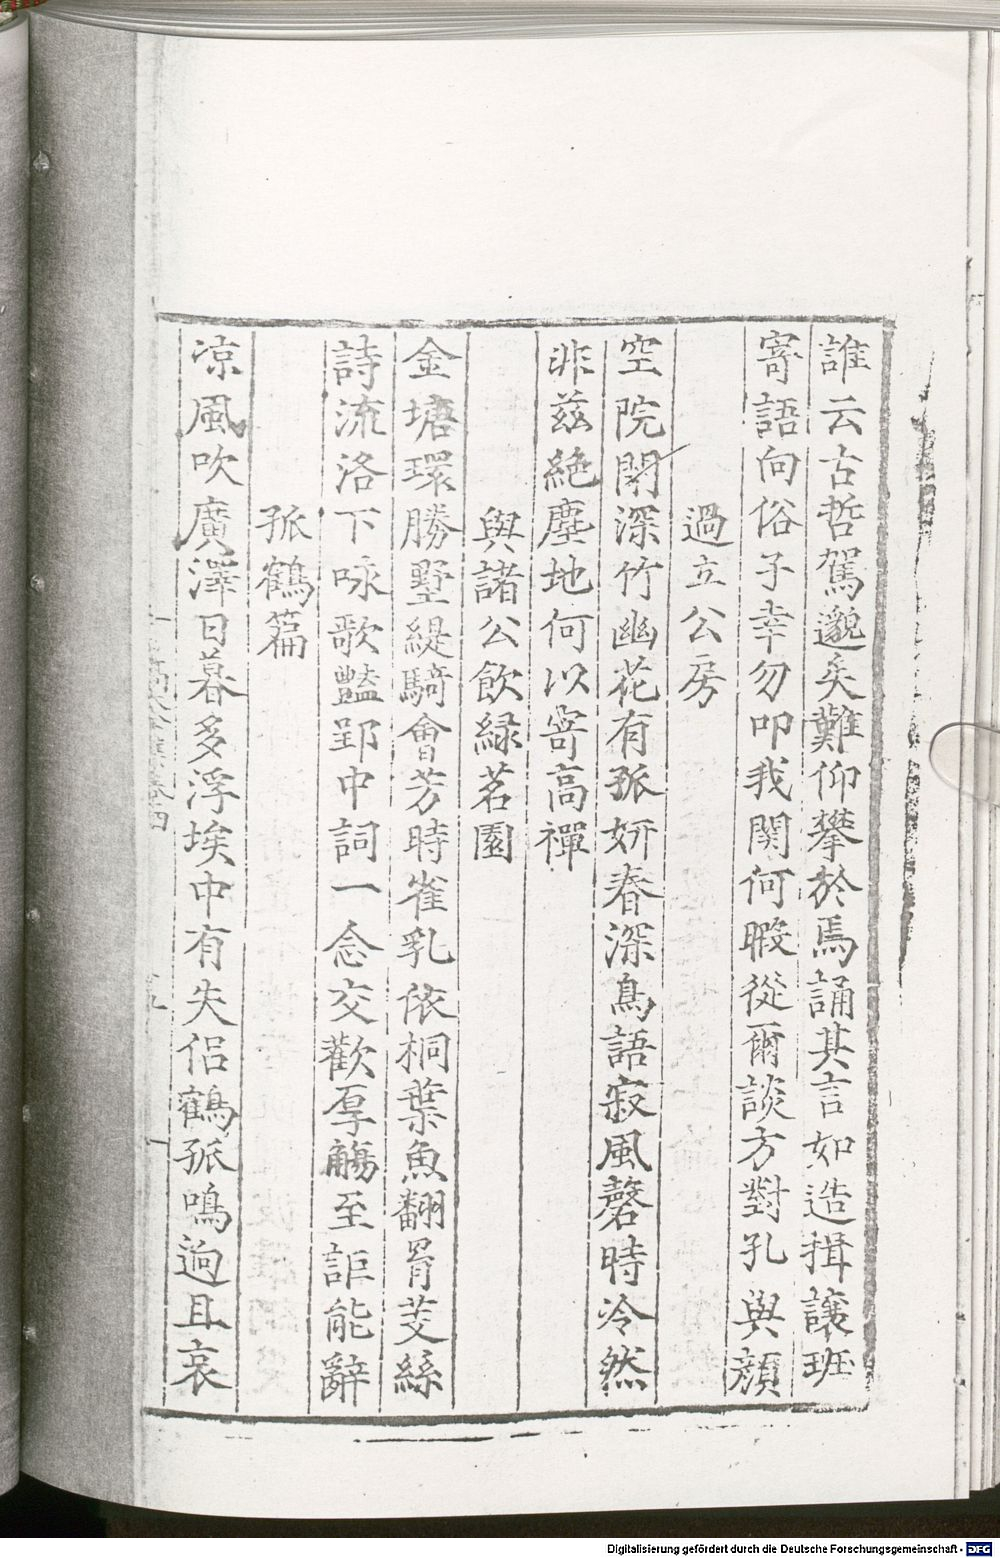 誰云古哲駕邈矣難仰攀於焉誦其言如造揖讓班
寄語向俗子幸勿叩我関何暇從爾談方對孔與顔
過立公房
空院閉深竹幽花有孤妍春深鳥語寂風磬時冷然
非茲絶塵地何以寄高禪
與諸公飲緑茗園
金塘環勝墅緹騎會芳時雀乳依桐葉魚翻罥芰絲
詩流洛下咏歌豔郢中詞一念交歡厚觴至詎能辭
孤鶴篇
凉風吹廣澤日暮多浮埃中有失侣鶴孤鳴逈且哀
Digitalisierung gefördert durch die Deutsche Forschungsgemeinschaft - DFG